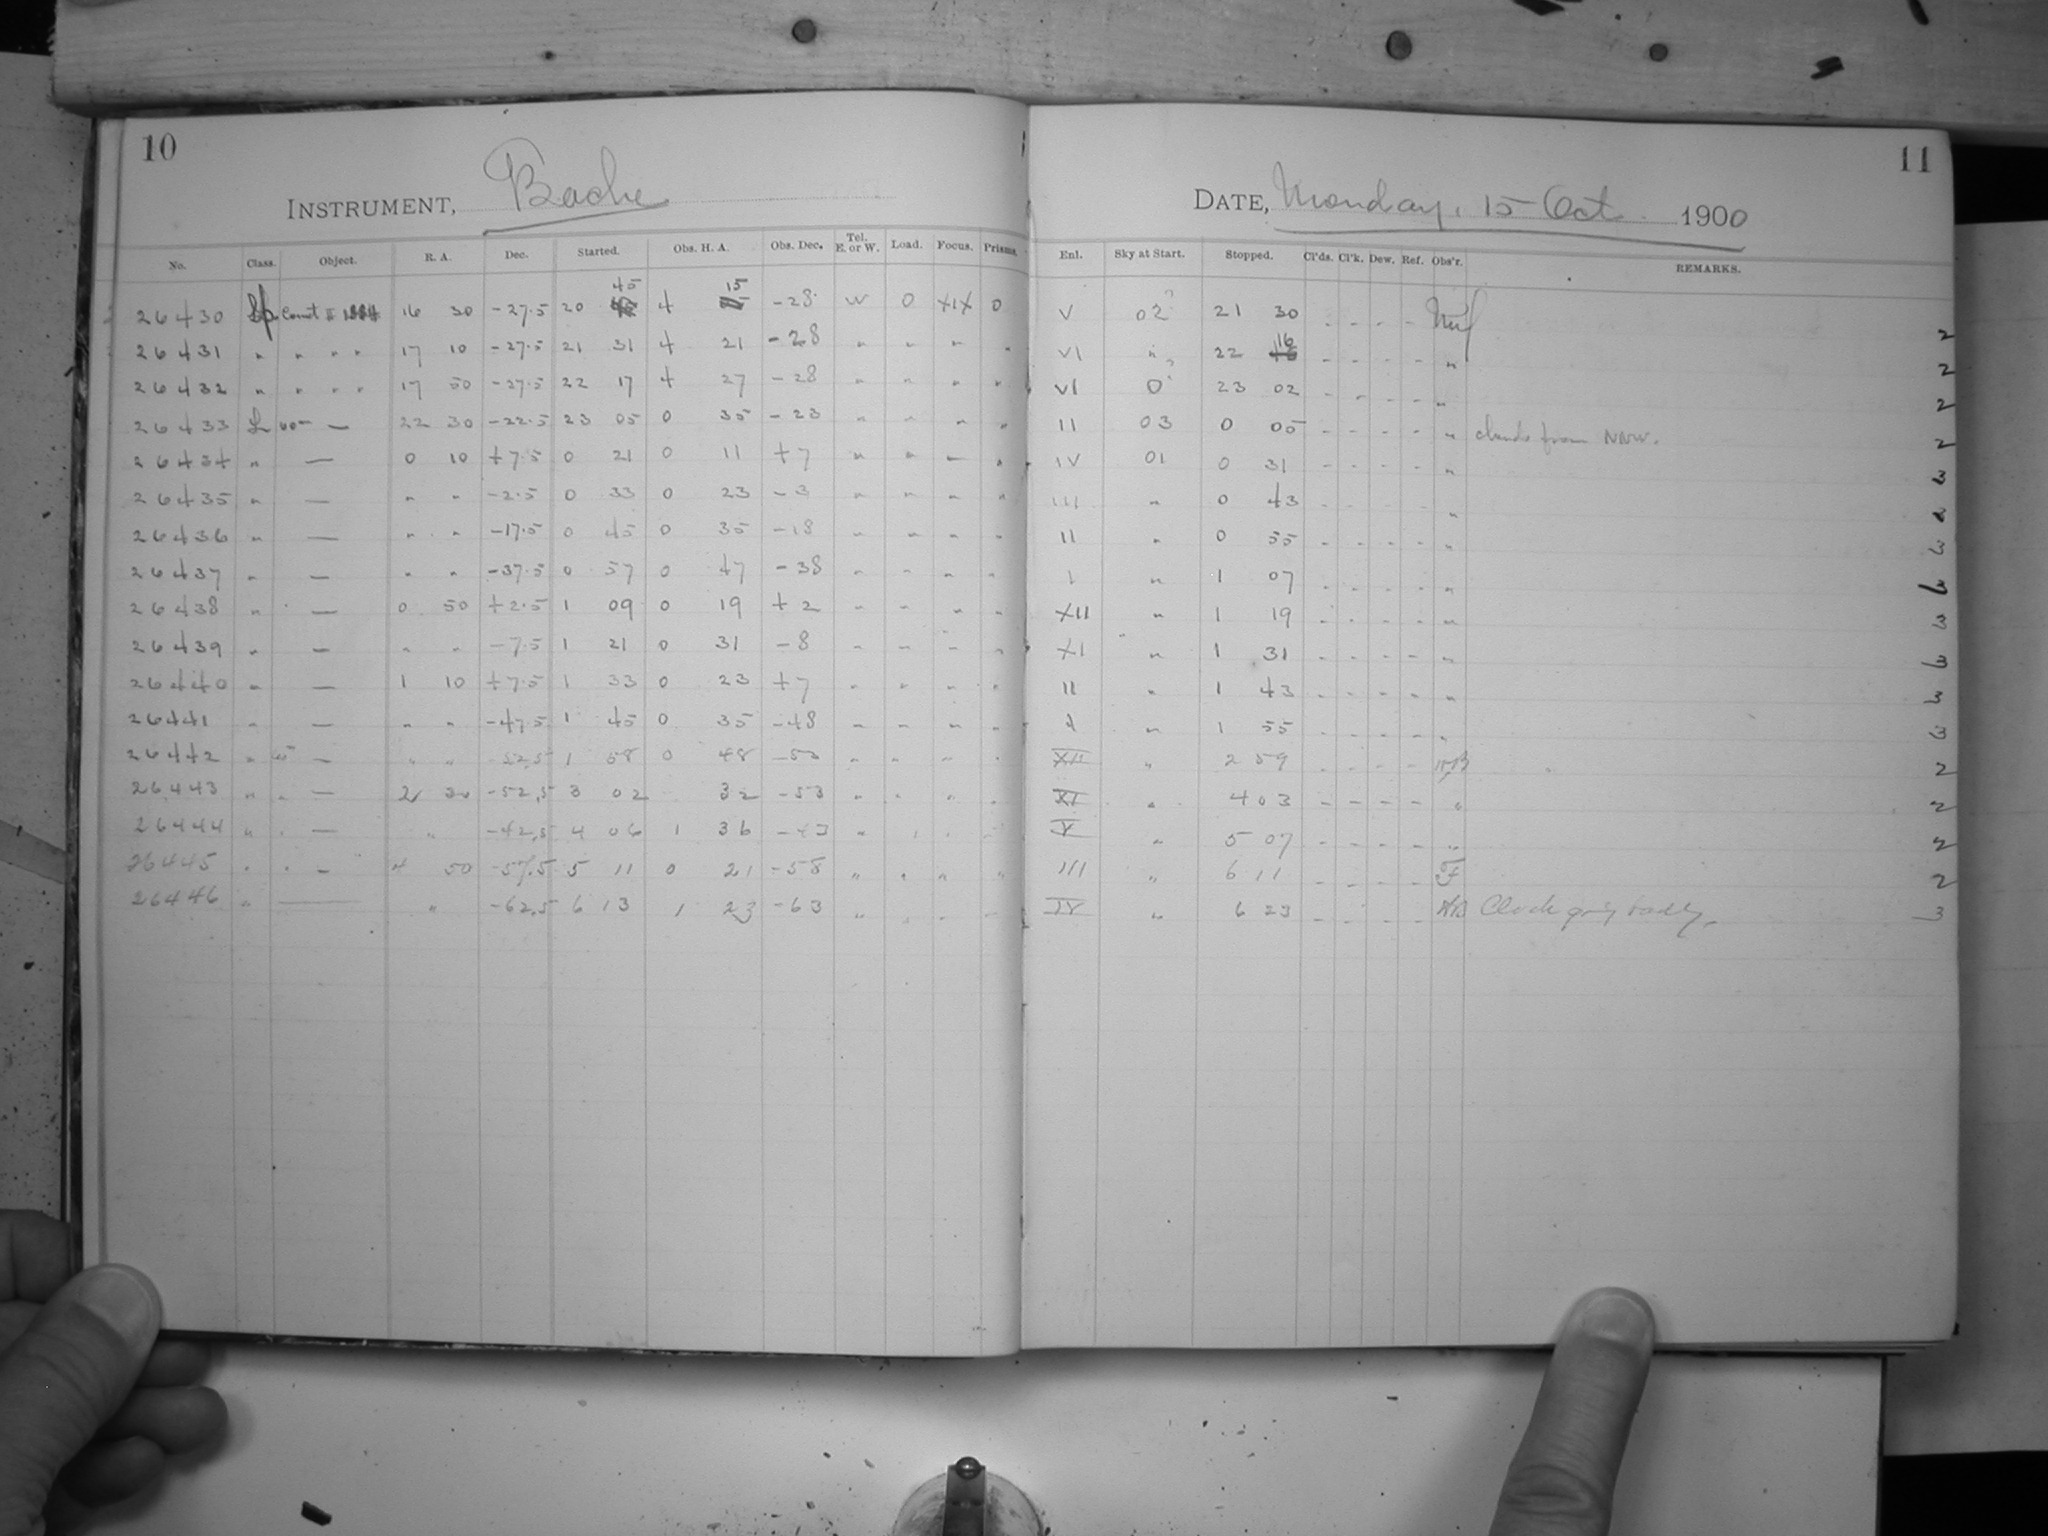 10
INSTRUMENT, Bache
No. Class. Object. R. A. Dec. Started. Obs. H. A. Obs. Dec. Tel. E. or W. Load. Focus. Prisms.
26430 Sp Comet 16 30 -27.5 20 45 4 15 -28 W 0 XIX 0
26431 " " " " 17 10 -27.5 21 31 4 21 -28 " " " "
26432 " " " " 17 50 -27.5 22 17 4 27 -28 " " " "
26433 L 60m — 22 30 -22.5 23 05 0 35 -23 " " " "
26434 " — 0 10 +7.5 0 21 0 11 +7 " " — "
26435 " — " " -2.5 0 33 0 23 -3 " " " "
26436 " — " " -17.5 0 45 0 35 -18 " " " "
26437 " — " " -37.5 0 57 0 47 -38 " " " "
26438 " — 0 50 +2.5 1 09 0 19 +2 " " " "
26439 " — " " -7.5 1 21 0 31 -8 " " " "
26440 " — 1 10 +7.5 1 33 0 23 +7 " " " "
26441 " — " " -47.5 1 45 0 35 -48 " " " "
26442 " — " " -52.5 1 58 0 48 -53 " " " "
26443 " " — 2 30 -52.5 3 02 32 -53 " " " "
26444 " " — " -42.5 4 06 1 36 -43 " " "
26445 " " — 4 50 -57.5 5 11 0 21 -58 " " " "
26446 " — " -62.5 6 13 1 23 -63 " " " "
11
DATE, Monday, 15 Oct. 1900
Enl. Sky at Start. Stopped. Cl'ds. Cl'k. Dew. Ref. Obs'r. REMARKS.
V 02? 21 30 - - - - 2
VI " 22 16 - - - - " 2
VI 0 23 02 - - - - " 2
II 03 0 05 - - - - " clouds from NNW. 2
IV 01 0 31 - - - - " 3
III " 0 43 - - - - " 2
II " 0 55 - - - - " 3
I " 1 07 - - - - " 3
XII " 1 19 - - - - " 3
XI " 1 31 - - - - " 3
II " 1 43 - - - - " 3
" 1 55 - - - - " 3
XII " 2 59 - - - - 2
XI " 4 03 - - - - " 2
V " 5 07 - - - - " 2
III " 6 11 - - - - F 2
IV " 6 23 - - - - Clock going badly. 3